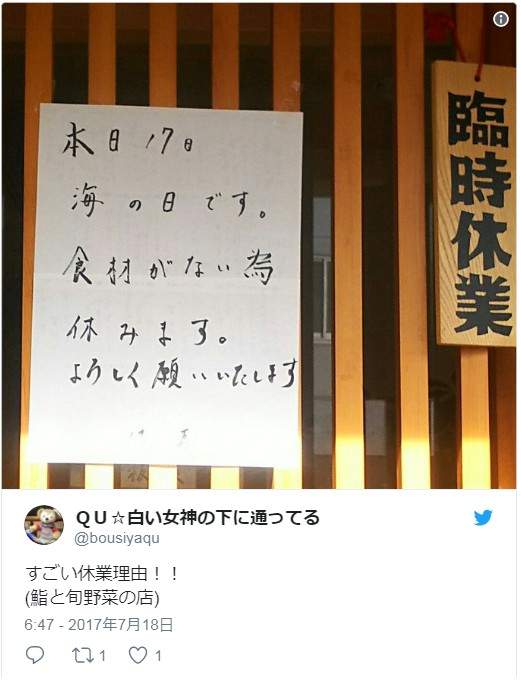 本日17日
海の日です。
食材がない為
休みます。
よろしく願いいたします
臨時休業
QU☆白い女神の下に通ってる
@bousiyaqu
すごい休業理由！！
(鮨と旬野菜の店)
6:47 - 2017年7月18日
1
1